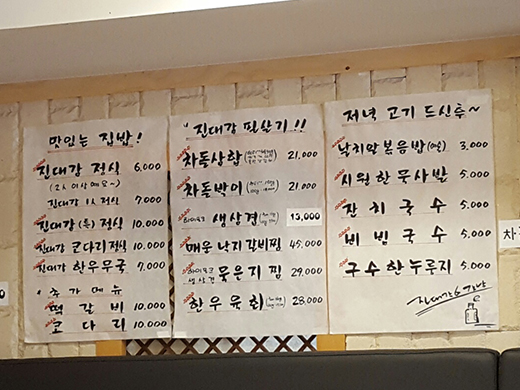 맛있는 집밥!
진대감 정식 6,000
(2人 이상 예요~)
진대감 1人 정식 7,000
진대감 (특) 정식 10,000
진대감 코다리정식 10,000
진대감 한우무국 7,000
추가메뉴
떡갈비 10,000
코다리 10,000
진대감 판살기!!
차돌삼합 21,000
차돌박이 21,000
생삼겹 13,000
매운 낙지 갈비찜 45,000
생삼겹 묵은지찜 29,000
한우육회 28,000
저녁 고기 드신후~
날치알볶음밥 3,000
시원한 묵사발 5,000
잔치국수 5,000
비빔국수 5,000
구수한누룽지 5,000
차